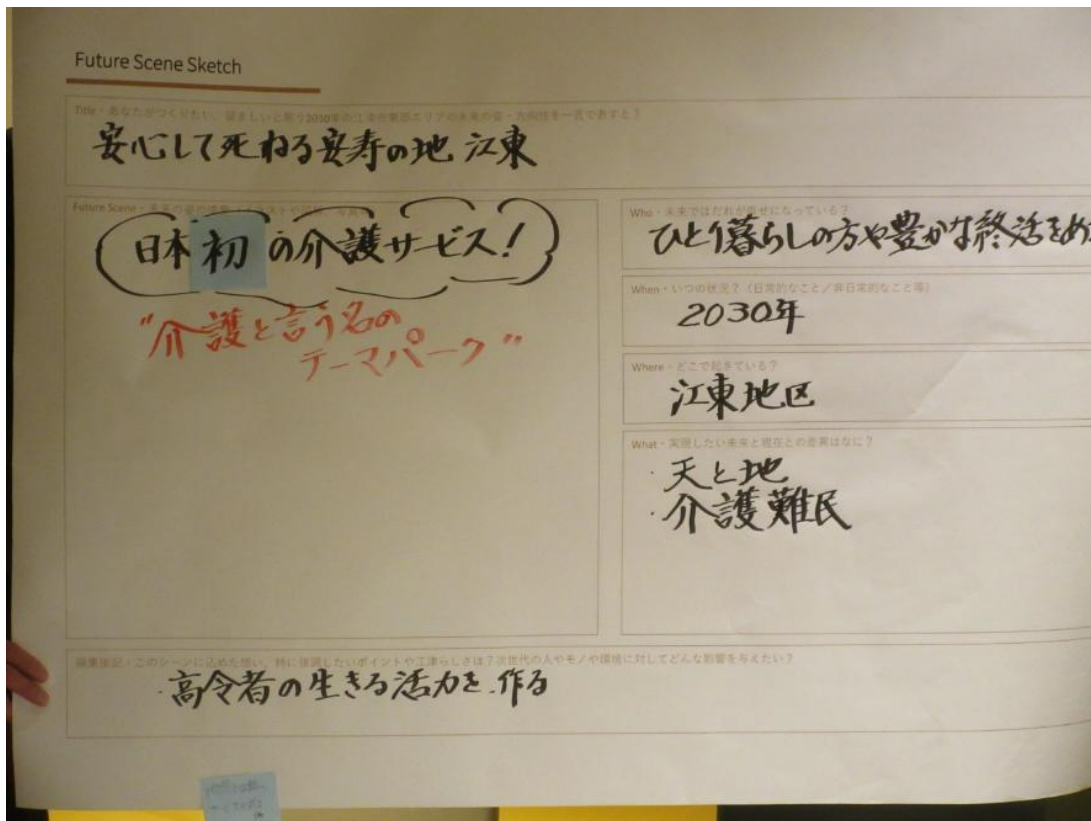 Future Scene Sketch
Title・あなたがつくりたい、望ましいと思う2030年の江津市東部エリアの未来の姿・方向性を一言で表すと？
安心して死ねる安寿の地 江東
Future Scene・未来の姿の情景
日本初の介護サービス！
"介護と言う名の
テーマパーク"
Who・未来ではだれが幸せになっている？
ひとり暮らしの方や豊かな終活をめ
When・いつの状況？（日常的なこと／非日常的なこと等）
2030年
Where・どこで起きている？
江東地区
What・実現したい未来と現在との差異はなに？
・天と地
・介護難民
編集後記：このシーンに込めた想い、特に強調したいポイントや江津らしさは？次世代の人やモノや環境に対してどんな影響を与えたい？
・高令者の生きる活力を作る